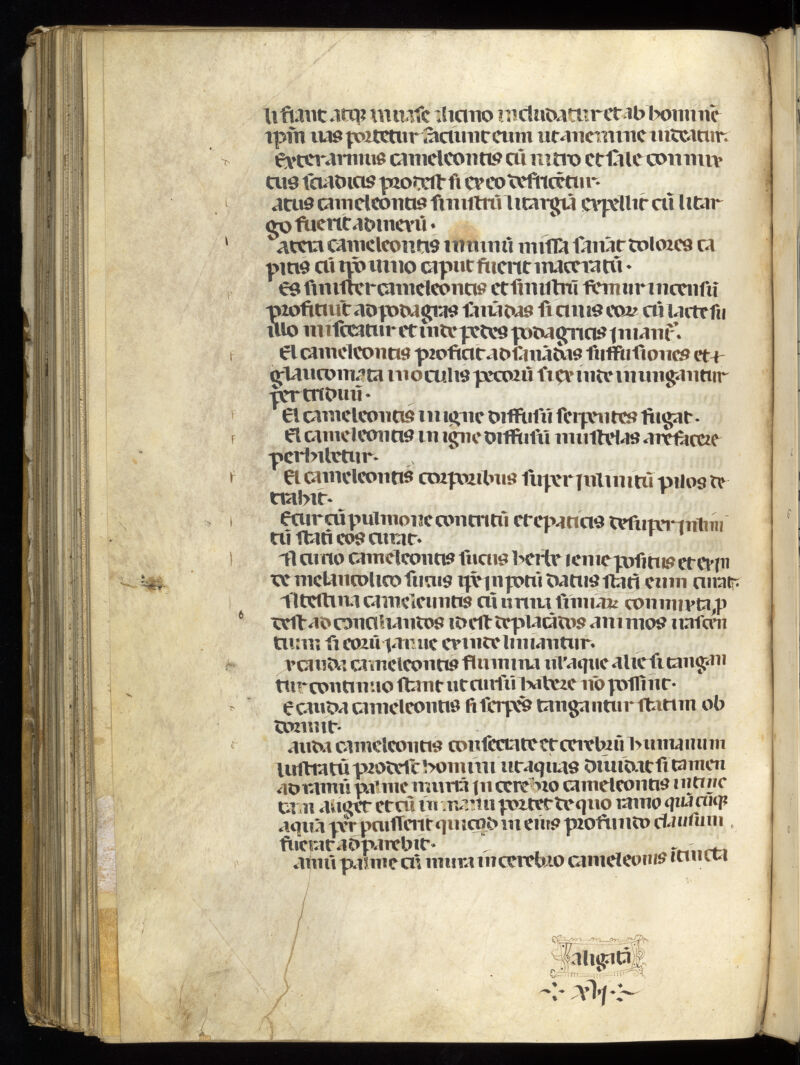 li fiant atq; in uase ilicino includatur et ab homine
ipm uas portetur faciunt eum ut a nemine uideatur.
exter armus cameleontis cū nitro et sale conmix
tus scabicis prodest si ex eo defricētur.
atus cameleontis sinistrū litargiā expellit cū litar
go fuerit admexū.
atera cameleontis in uinū missa sanat dolores ca
pitis cū ipo uino caput fuerit maceratū.
es sinister cameleontis et sinistrū femur incensū
proficiūt ad podagras sanādas si cinis eor cū lacte su
illo misceatur et inde pedes podagricis iniant̄.
el cameleontis proficit ad sanādas suffusiones et
glaucomata in oculis pecorū si ex inde inungantur
per triduū.
el cameleontis in igne diffusū serpentes fugat.
el cameleontis in igne diffusū mustelas arefacere
perhibetur.
el cameleontis corporibus super inlinitū pilos de
trahit.
ecur cū pulmone contritū et epaticis desuper inlini
tū statī eos curat.
cameleontis sucus herbe ieme positus et ex in
de melancolico sucus ipe in potū datus statī eum curat.
testina cameleuntis cū urina simiar conmixta p
dest ad conciliandos id est deplacādos animos uascen
tium si eorū ianue ex inde liniantur.
cauda cameleontis flumina ulaque alie si tangan
tur continuo stant ut cursū habere nō possint.
e cauda cameleontis si serpēs tangantur statim ob
dormit.
auda cameleontis consectate et cerebrū humanum
lustratū prodest homini ut aquas diuidat si tamen
ad ramū palme in cerebro cameleontis
aliget et cū in manu portet de quo ramo quācūq;
aquā per pcusserit quicqd in eius profundo clausum
fuerat adparebit.
amū palme cū mirra in cerebro cameleonis
aligatā
XVI